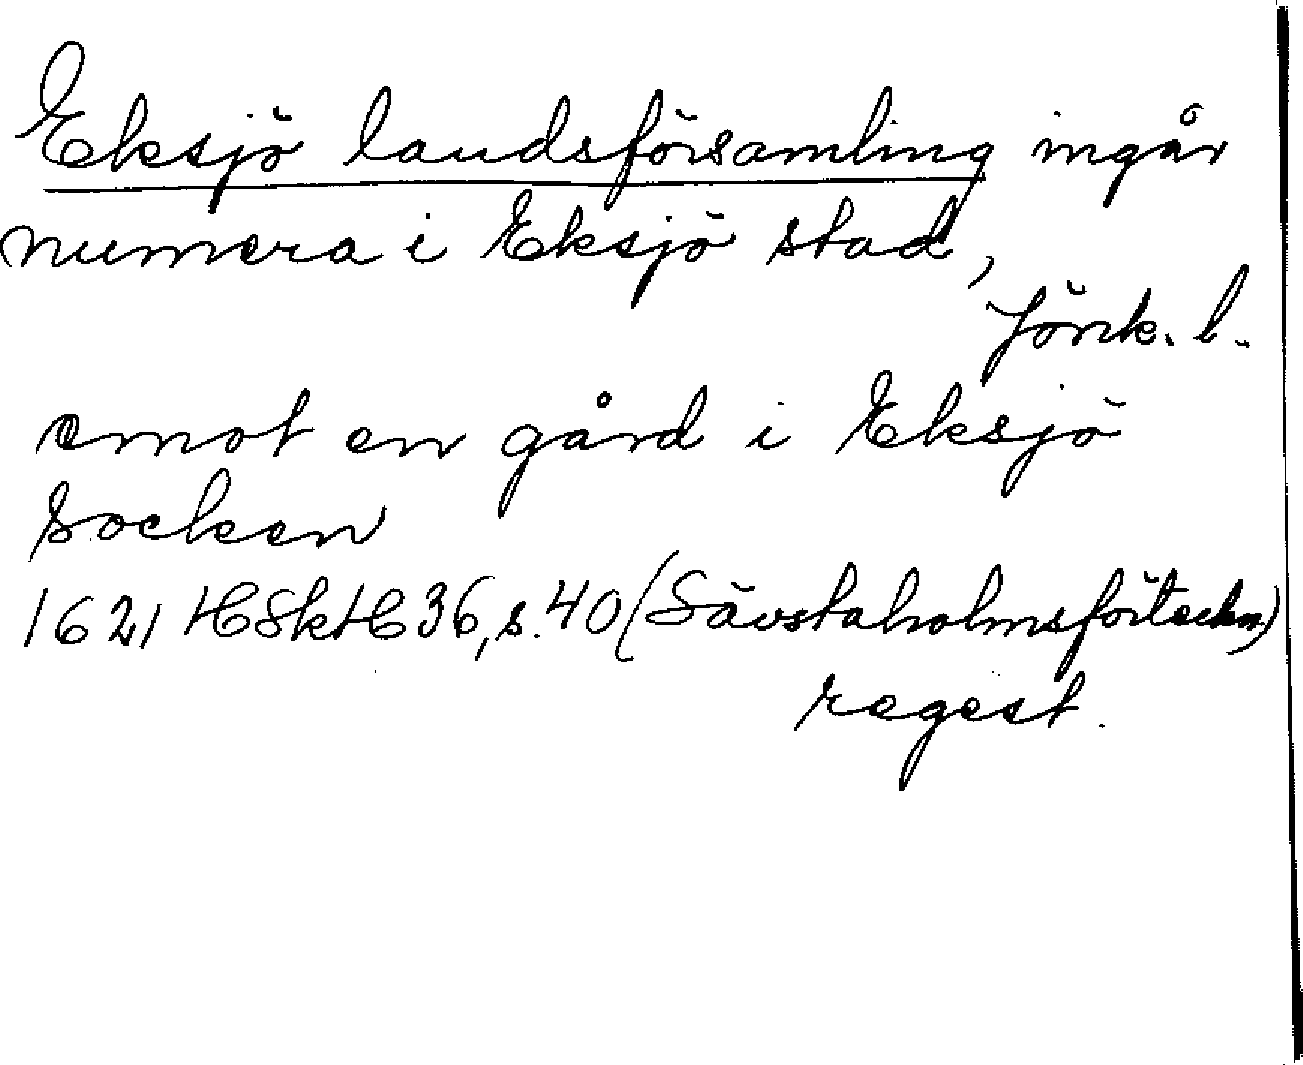 Eksjö landsförsamling ingår
numera i Eksjö stad,
Jönk. l.
emot en gård i Eksjö
socken
1621 HSkH 36, s. 40 (Sävstaholmsförteckn)
regest.